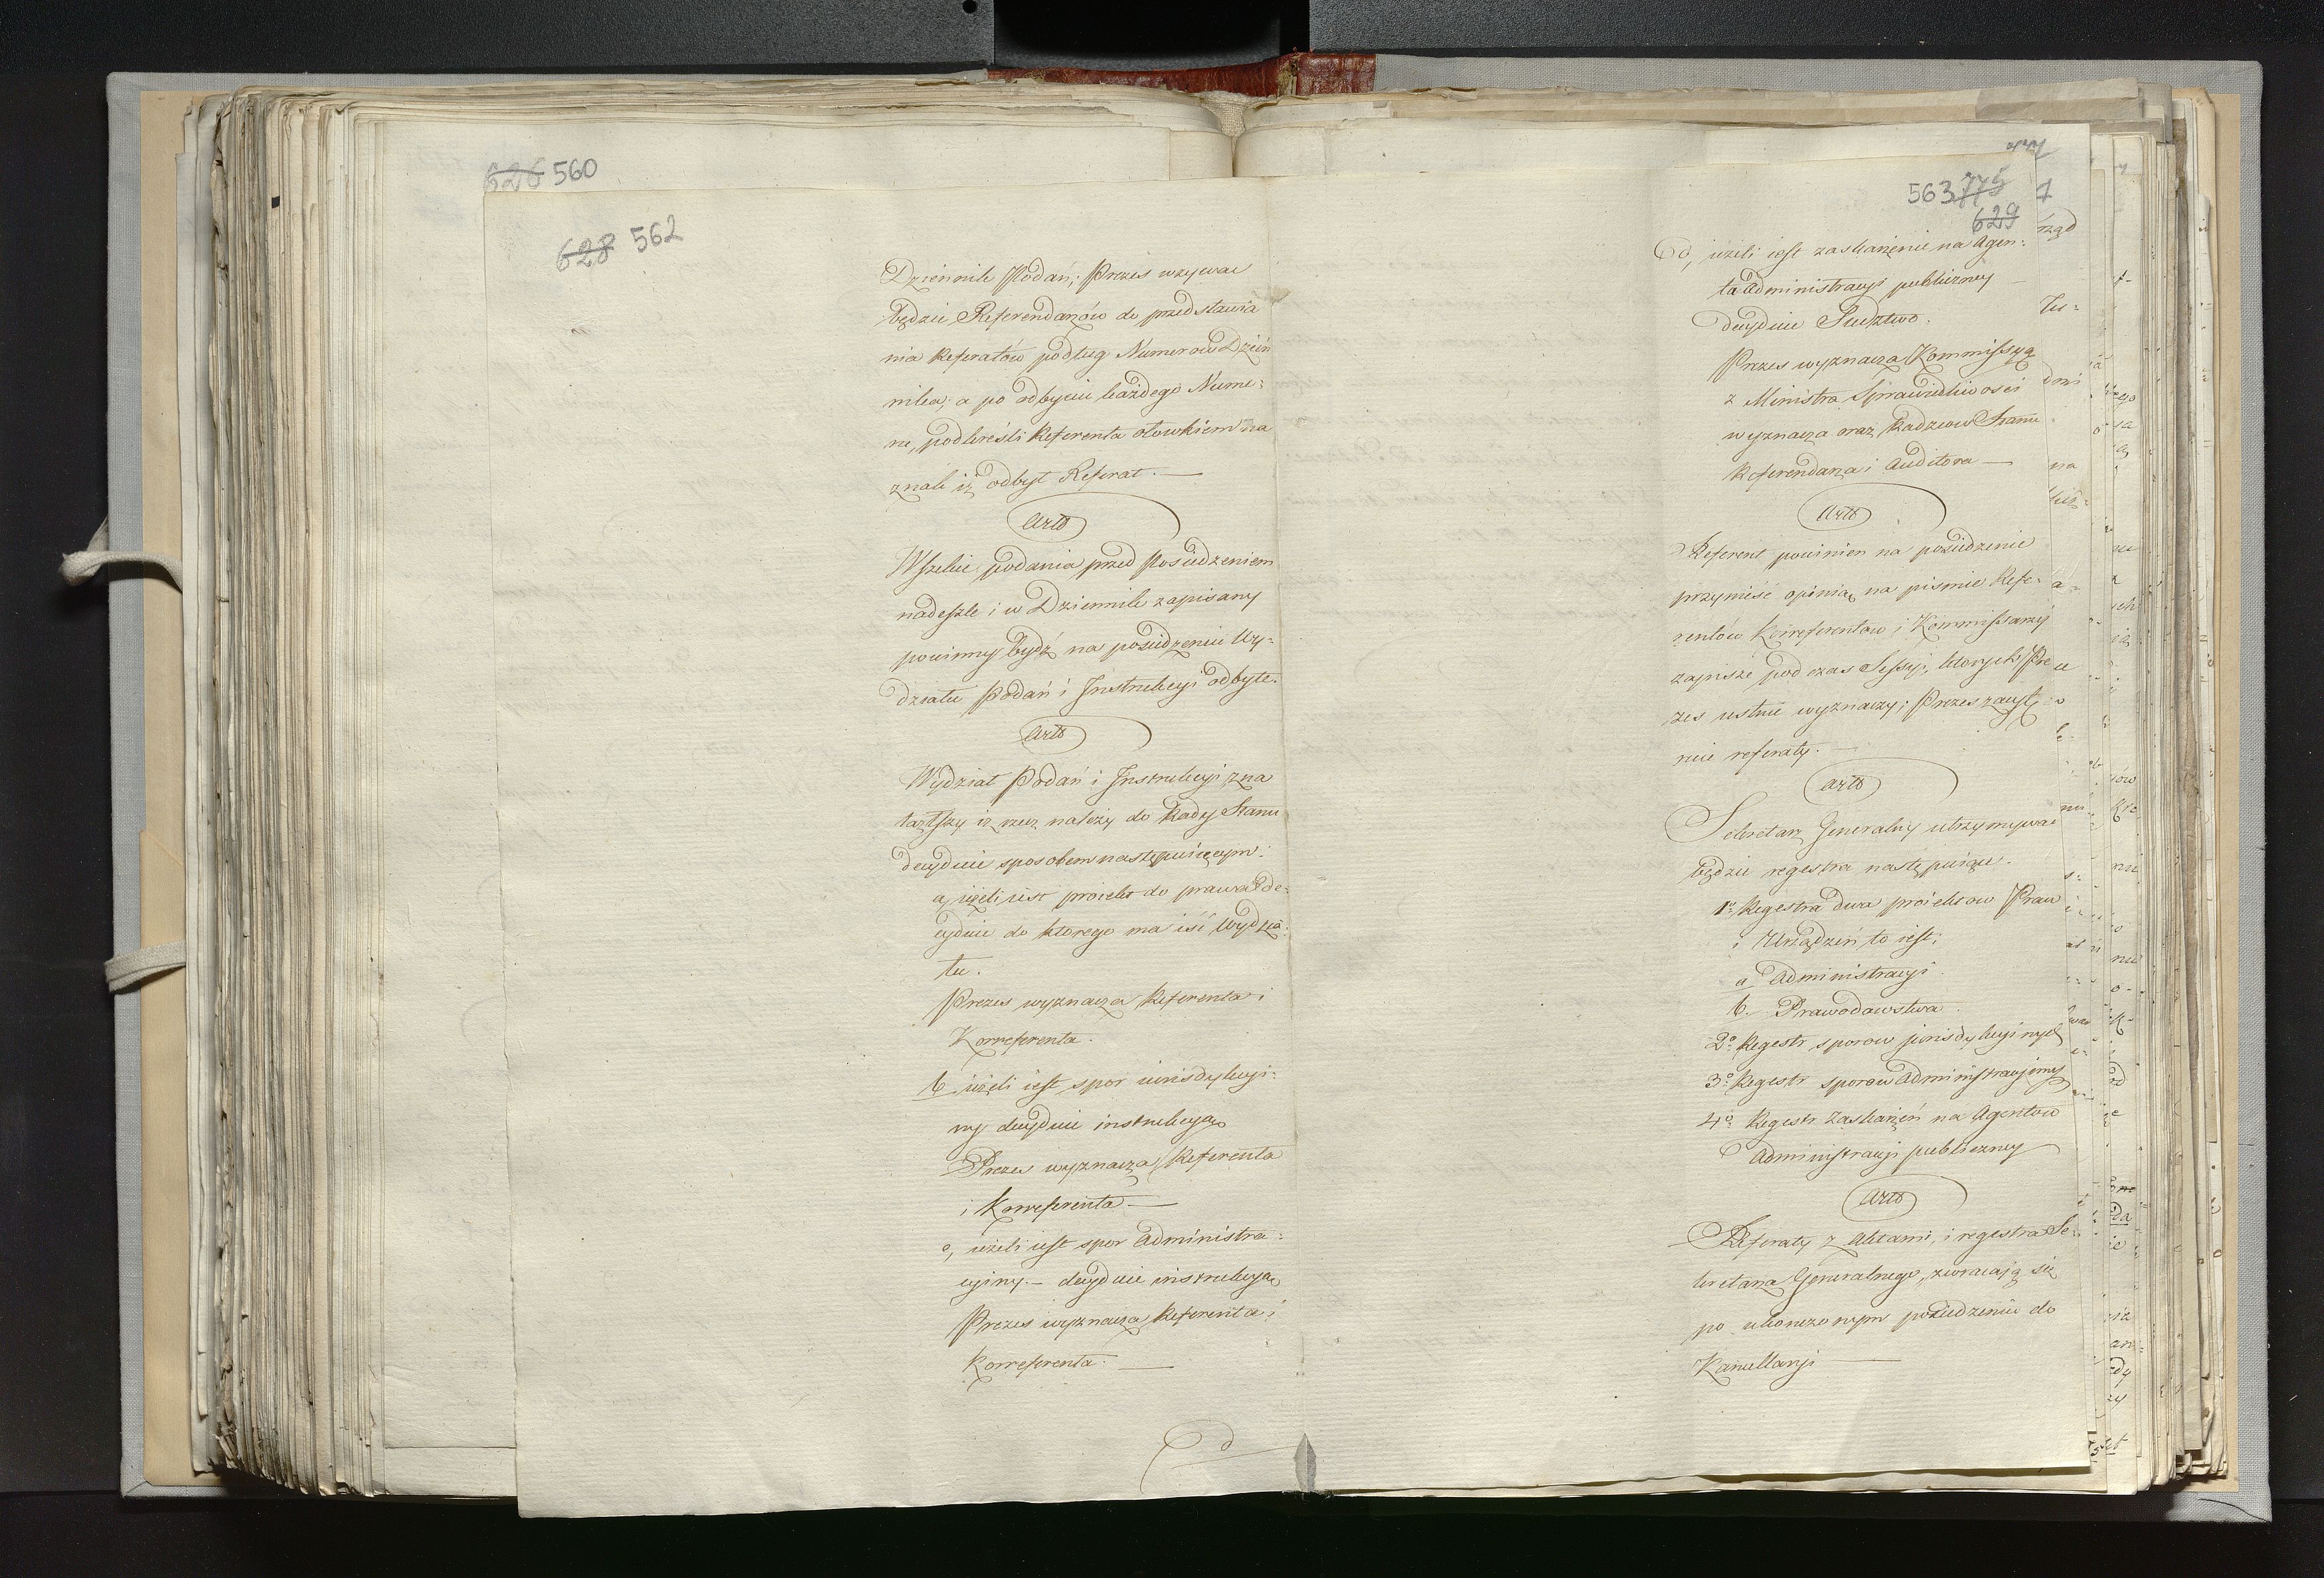 626 560
628 562
Dziennik Podań; Prezes wzywac
będzie Referendarzów do przedstawia
nia Referatów podług Numerow Dzien
nika; a po odbyciu każdego Nume-
ru, podkreśli Referenta ołowkiem na
znak iż odbył Referat. —
Artt
Wszelkie podania przed Posiedzeniem
nadeszłe i w Dzienniku zapisany
powinny bydź na posiedzeniu Wy-
działu Podań i Instrukcyi odbyte.
Artt
Wydział Podań i Instrukcyi, zna
lazłszy iz rzecz należy do Rady Stanu
decyduie sposobem następuiącym:
a, ieżeli iest proiekt do prawa de-
cyduie do ktorego ma iść Wydzia-
łu.
Prezes wyznacza Referenta i
Korreferenta.
b. ieżeli iest spor iurisdykcyi-
ny decyduie instrukcyą
Prezes wyznacza Referenta
i Korreferenta —
c, ieżeli iest spor Administra-
cyiny. — decyduie instrukcyą
Prezes wyznacza Referenta i
Korreferenta. —
d
563 775
629
d, ieżeli iest zaskarżenie na Agen-
ta Administracyi publiczney —
decyduie Sledztwo.
Prezes wyznacza Kommissyą
z Ministra Sprawiedliwosci
wyznacza oraz Radzcow Stanu
Referendarza i Auditora —
Artt
Referent powinien na posiedzenie
przynieść opinią na pismie Refe-
rentów Korreferentow i Kommissarzy
zapisze pod czas Sessyi, ktorych Pre
zes ustnie wyznaczy; Prezes zaust
nie referaty. —
Artt
Sekretarz Generalny utrzymywac
będzie regestra następuiące.
1o. Regestra dwa proiektow Praw
i Urządzeń to iest;
a. Administracyi
b. Prawodawstwa.
2o. Regestr sporow jurisdykcyinych
3o. Regestr sporow Administracyinych
4o. Regestr Zaskarżeń na Agentow
Administracyi publiczney
Artt
Referaty z Aktami, i regestra Se-
kretarza Generalnego, zwracają się
po ukonczonym posiedzeniu do
Kancellaryi —